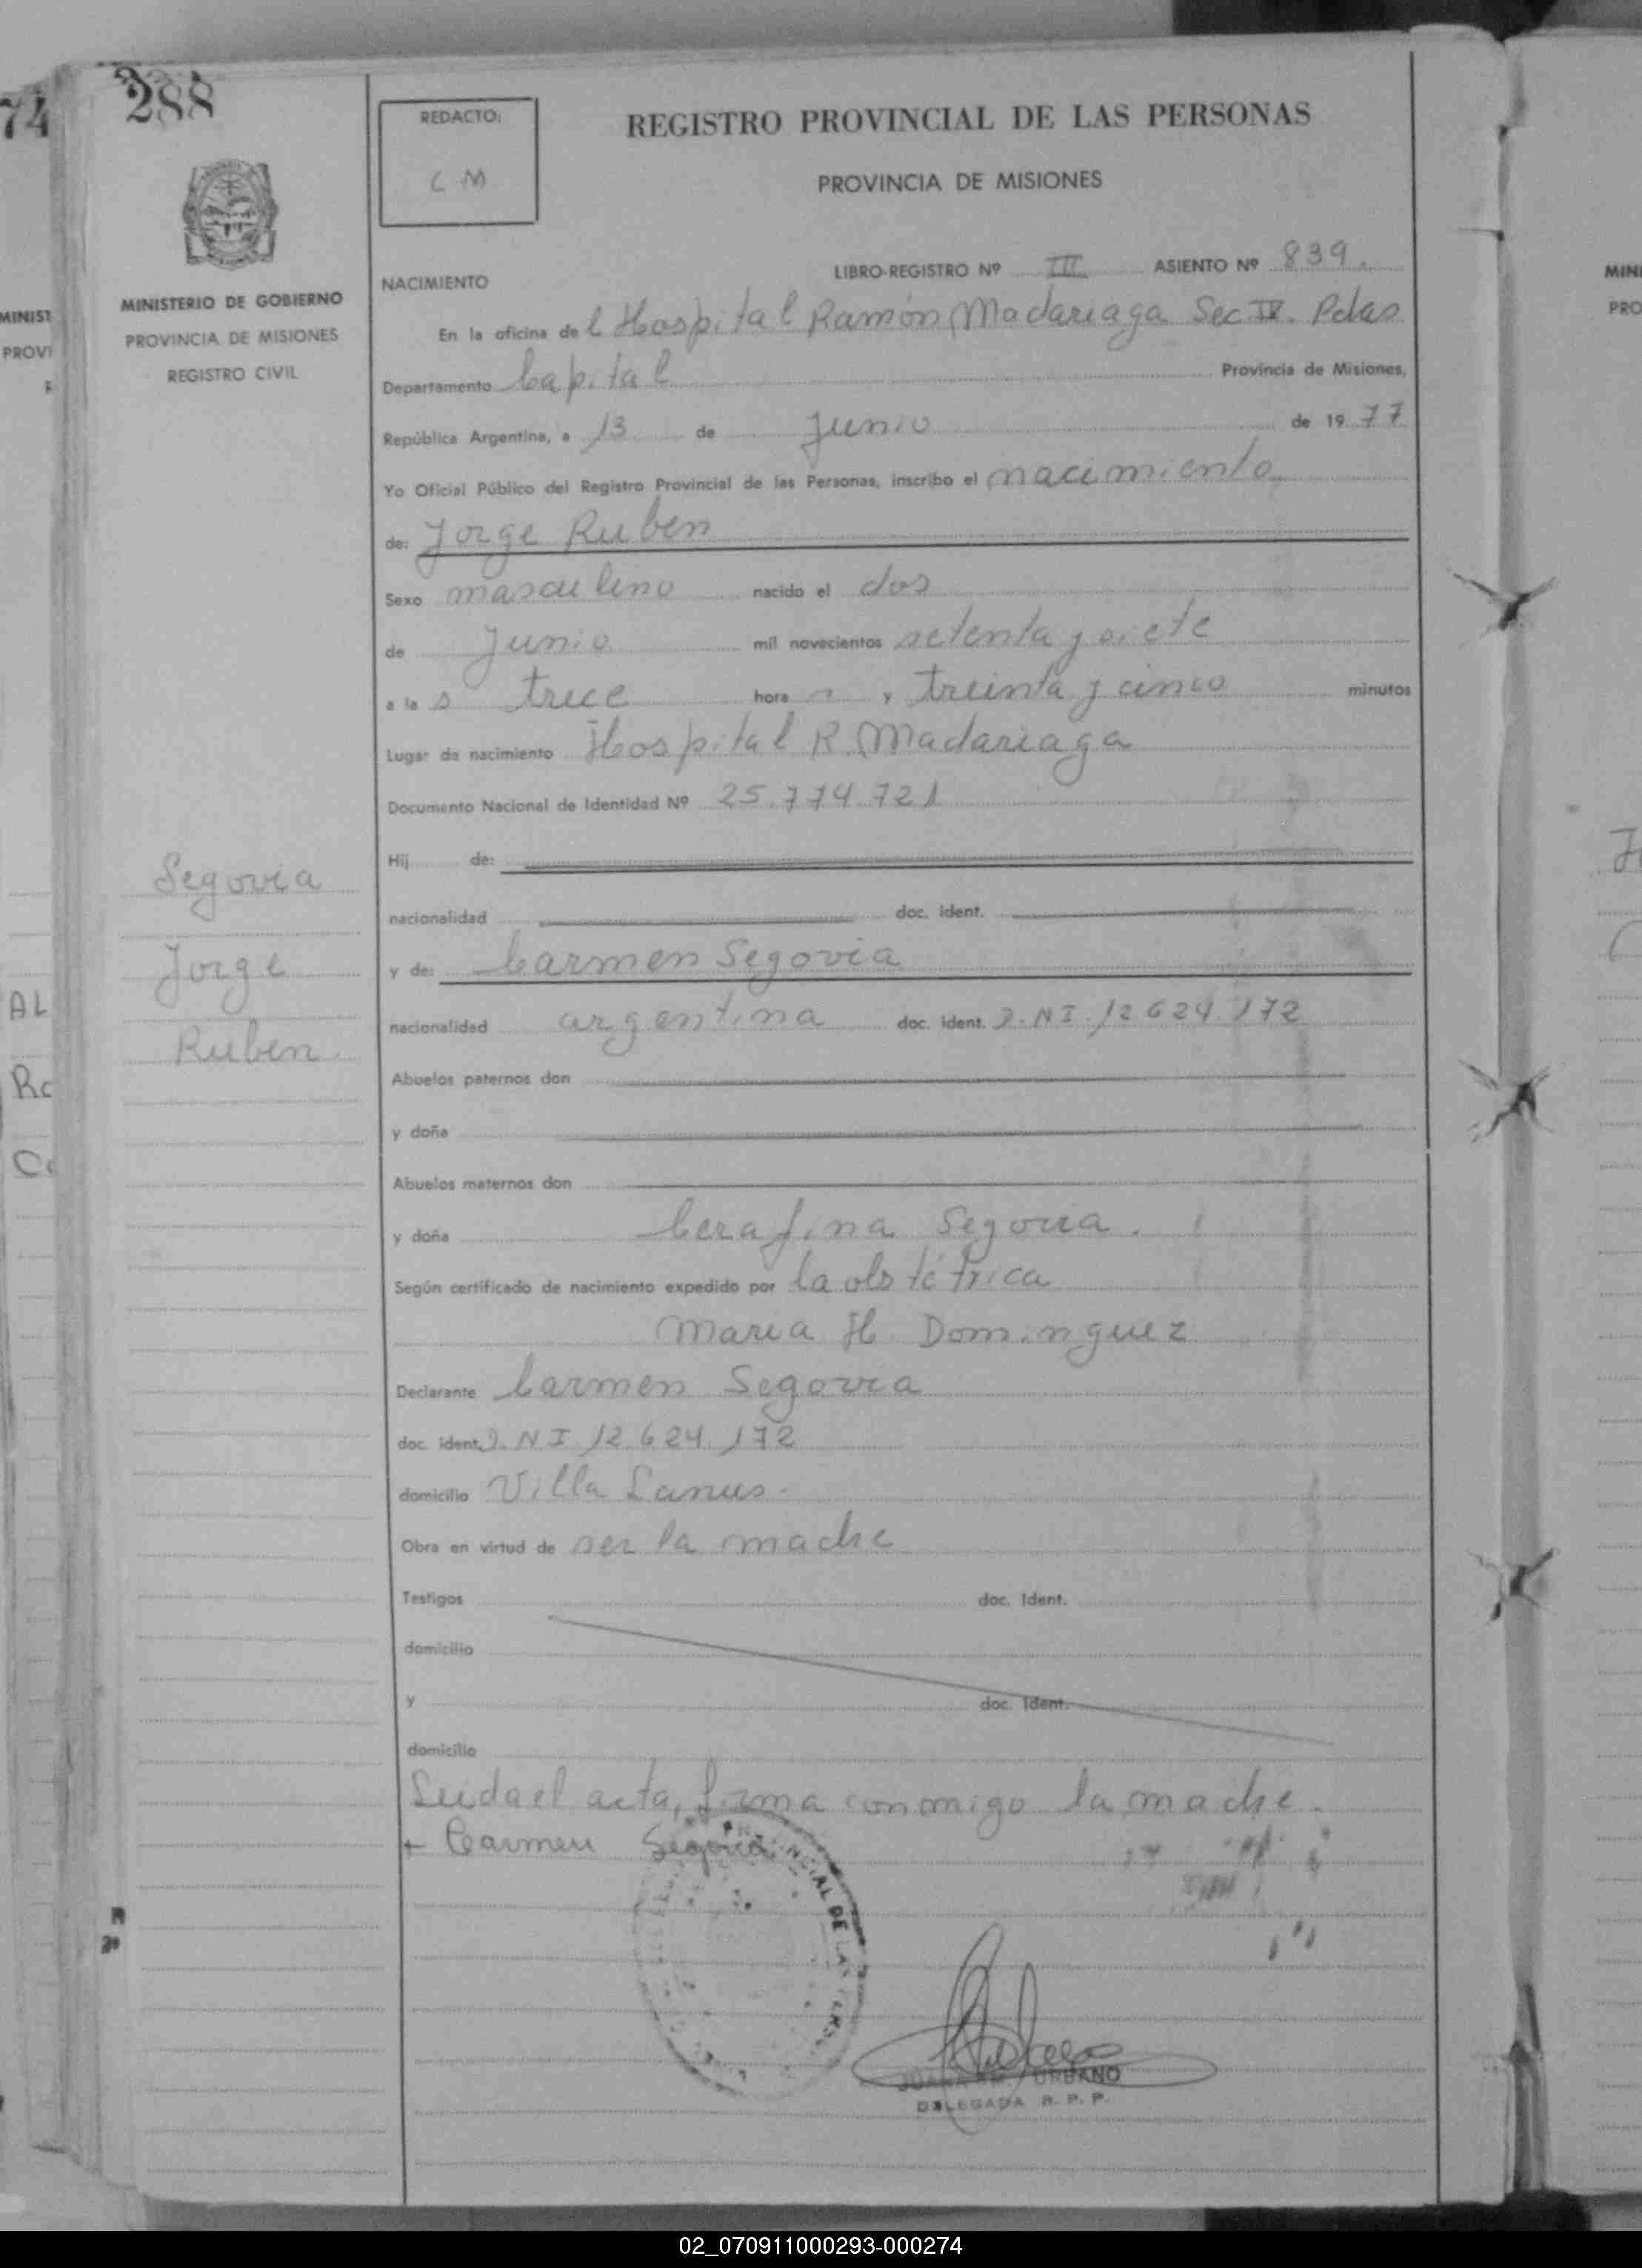 74
288
REDACTO:
C M
REGISTRO PROVINCIAL DE LAS PERSONAS
PROVINCIA DE MISIONES
MINISTERIO DE GOBIERNO
PROVINCIA DE MISIONES
REGISTRO CIVIL
NACIMIENTO
LIBRO-REGISTRO Nº III ASIENTO Nº 839.
En la oficina del Hospital Ramón Madariaga Sec IV. Pdas
Departamento Capital Provincia de Misiones,
República Argentina, a 13 de Junio de 1977
Yo Oficial Público del Registro Provincial de las Personas, inscribo el nacimiento
de: Jorge Ruben
Sexo masculino nacido el dos
de Junio mil novecientos setenta y siete
a la s trece hora s y treinta y cinco minutos
Lugar de nacimiento Hospital R Madariaga
Documento Nacional de Identidad Nº 25.774.721
Hij de:
nacionalidad doc. ident.
Segovia
Jorge
Ruben
y de: Carmen Segovia
nacionalidad argentina doc. ident. D.NI.12624.172
Abuelos paternos don
y doña
Abuelos maternos don
y doña Cerafina Segovia.
Según certificado de nacimiento expedido por la obstétrica
Maria H Dominguez
Declarante Carmen Segovia
doc. ident. D.NI 12.624.172
domicilio Villa Lanus.
Obra en virtud de ser la madre
Testigos doc. Ident.
domicilio
y doc. Ident.
domicilio
Leida el acta, firma conmigo la madre.
+ Carmen Segovia
URBANO
DELEGADA R.P.P.
MINIST
PROVI
AL
MINI
PRO
02_070911000293-000274